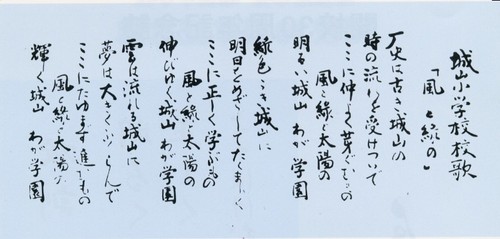 城山小学校校歌
「風と緑の」
历史は古き城山の
時の流れを受けついで
ここに仲よく芽ぐむもの
風と緑と太陽の
明るい城山 わが学園
緑色こき城山に
明日をめざしてたくましく
ここに正しく学ぶもの
風と緑と太陽の
伸びゆく城山 わが学園
雲は流れる城山に
夢は大きくふくらんで
ここにたゆまず進むもの
風と緑と太陽の
輝く城山 わが学園